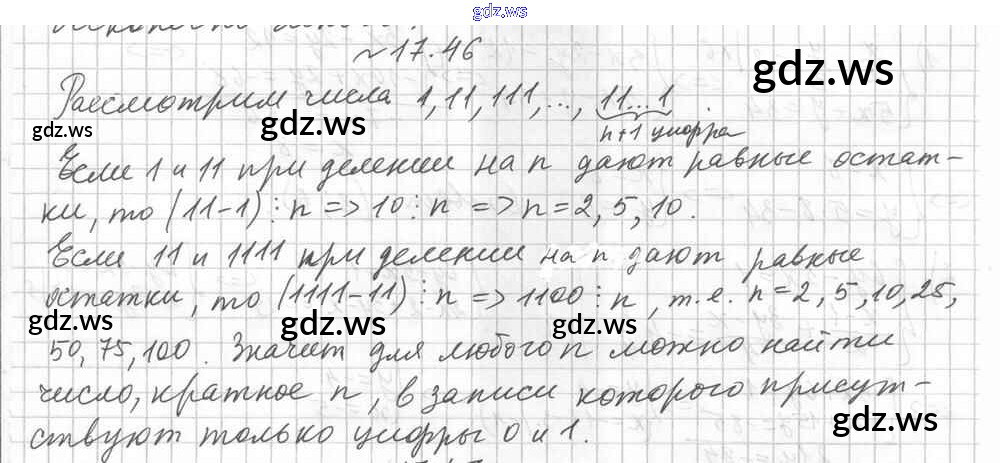 gdz.ws
№17.46
gdz.ws
Рассмотрим числа 1, 11, 111, ..., 11...1 .
gdz.ws gdz.ws n+1 цифра
Если 1 и 11 при делении на n дают равные остат-
ки, то (11-1)⋮n => 10⋮n => n=2, 5, 10.
Если 11 и 1111 при делении на n дают равные
остатки, то (1111-11)⋮n => 1100⋮n, т.е. n=2, 5, 10, 25,
gdz.ws gdz.ws gdz.ws
50, 75, 100. Значит для любого n можно найти
число, кратное n, в записи которого присут-
gdz.ws
ствуют только цифры 0 и 1.